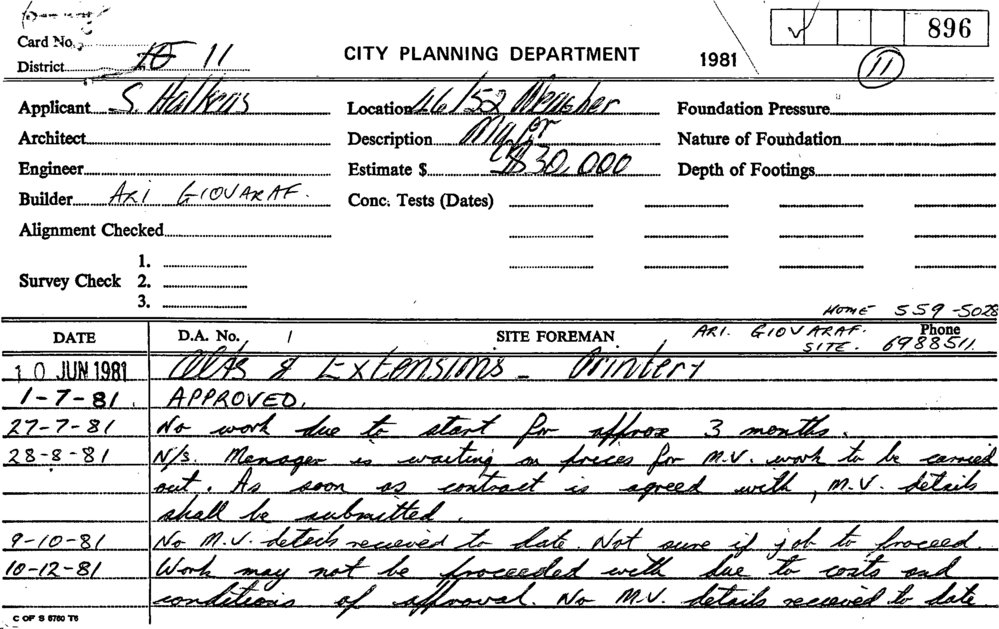 896
Card No.
District 10 11
CITY PLANNING DEPARTMENT 1981
11
Applicant S. Halkens Location 46/52 Foundation Pressure
Architect Description Nature of Foundation
Engineer Estimate $ $30,000 Depth of Footings
Builder ARI GIOVARAF. Conc. Tests (Dates)
Alignment Checked
1.
Survey Check 2.
3.
HOME 559-5028
DATE D.A. No. SITE FOREMAN ARI. GIOVARAF. Phone
SITE. 6988511.
10 JUN 1981 Alts & Extensions - Printery
1-7-81. APPROVED.
27-7-81 No work due to start for approx 3 months.
28-8-81 N/S. Manager is waiting on prices for M.V. work to be carried
out. As soon as contract is agreed with, M.V. details
shall be submitted.
9-10-81 No M.V. details received to date. Not sure if job to proceed.
10-12-81 Work may not be proceeded with due to costs and
conditions of approval. No M.V. details received to date
C OF S 5750 T6